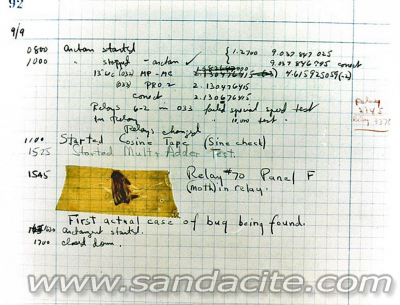 92
9/9
0800 Antan started
1000 " stopped - antan ✓ { 1.2700 9.037 847 025
9.037 846 795 correct
13"uc (032) MP-MC 2.130476415 4.615925059(-2)
(033) PRO.2 2.130476415
correct 2.130676415
Relays 6-2 in 033 failed special speed test
in relay " 10.000 test
Relay
Relays changed
1100 Started Cosine Tape (Sine check)
1525 Started Mult+Adder Test.
1545 Relay #70 Panel F
(moth) in relay.
First actual case of bug being found.
antangent started.
1700 closed down.
www.sandacite.com